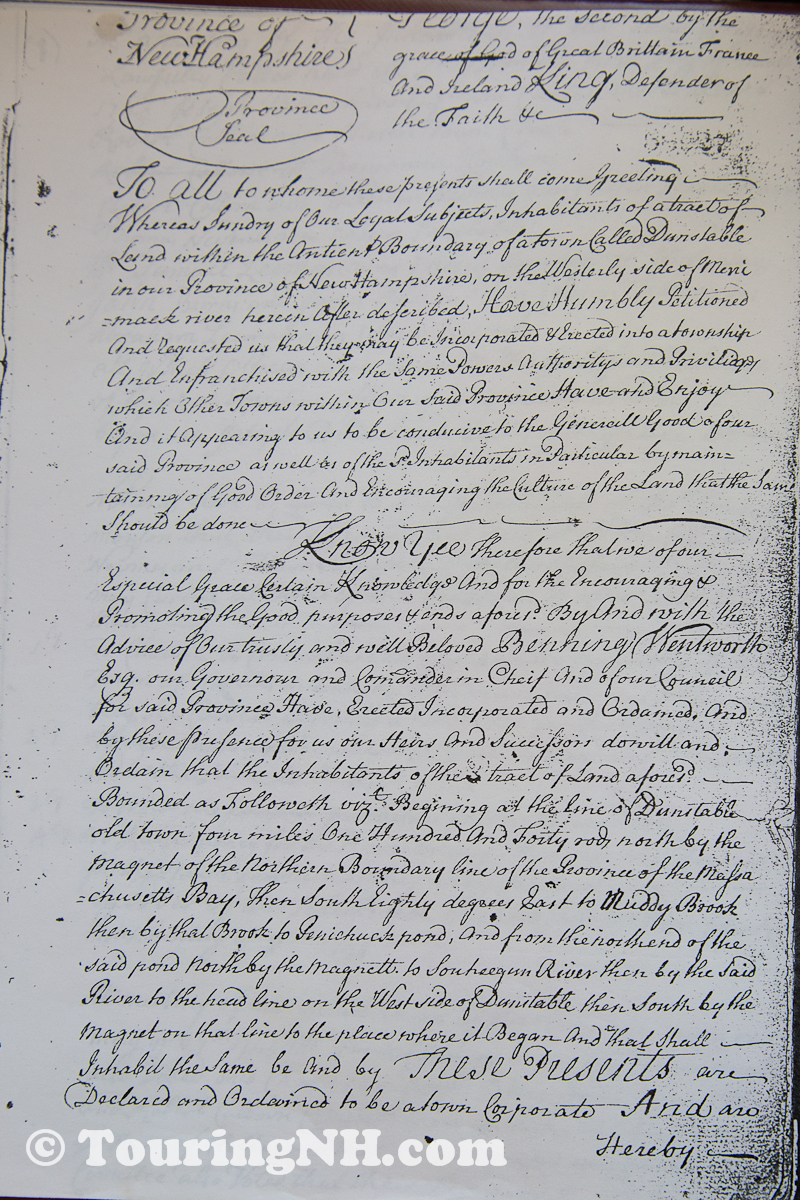 Province of
George, the Second by the
New Hampshire
grace of God of Great Brittain France
And Ireland King, Defender of
Province
Seal
the Faith &c
To all to whome these presents shall come Greeting
Whereas Sundry of Our Loyal Subjects, Inhabitants of a tract of
Land within the Antient Boundary of a town Called Dunstable
in our Province of New Hampshire, on the Westerly side of Meri
=mack river herein After described, Have Humbly Petitioned
And requested us that they may be Incorporated & Erected into a township
And Enfranchised with the Same Powers Authoritys and Priviliges
which Other Towns within Our said Province Have and Enjoy
And it Appearing to us to be conducive to the Generall Good of our
said Province as well as of the sd Inhabitants in Particular by main=
taining of Good Order And Encouraging the Culture of the Land that the Same
Should be done
Know Yee therefore that we of our
Especial Grace Certain Knowledge And for the Encouraging &
Promoting the Good purposes & ends aforesd. By And with the
Advice of Our trusty and well Beloved Benning Wentworth
Esq. our Governour and Comander in Cheif And of our Council
for said Province Have, Erected Incorporated and Ordained, And
by these Presence for us our Heirs And Successors do will and
Ordain that the Inhabitants of the tract of Land aforesd.
Bounded as Followeth vizt. Begining at the line of Dunstable
old town four miles One Hundred And Forty rods north by the
Magnet of the Northern Boundary line of the Province of the Massa
=chusetts Bay, then South Eighty degrees East to Muddy Brook
then by that Brook to Penichuck pond, And from the north end of the
said pond North by the Magnett. to Souheegun River then by the Said
River to the head line on the West side of Dunstable then South by the
Magnet on that line to the place where it Began And that Shall
Inhabit the Same be And by These Presents are
Declared and Ordained to be a town Corporate And are
Hereby
© TouringNH.com